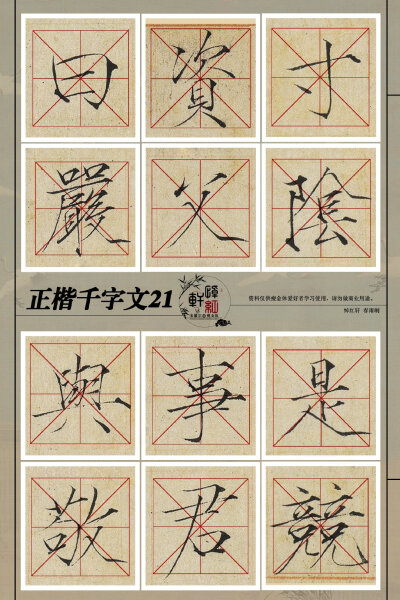 寸陰是競
資父事君
曰嚴與敬
正楷千字文21
资料仅供瘦金体爱好者学习使用，请勿做商业用途。